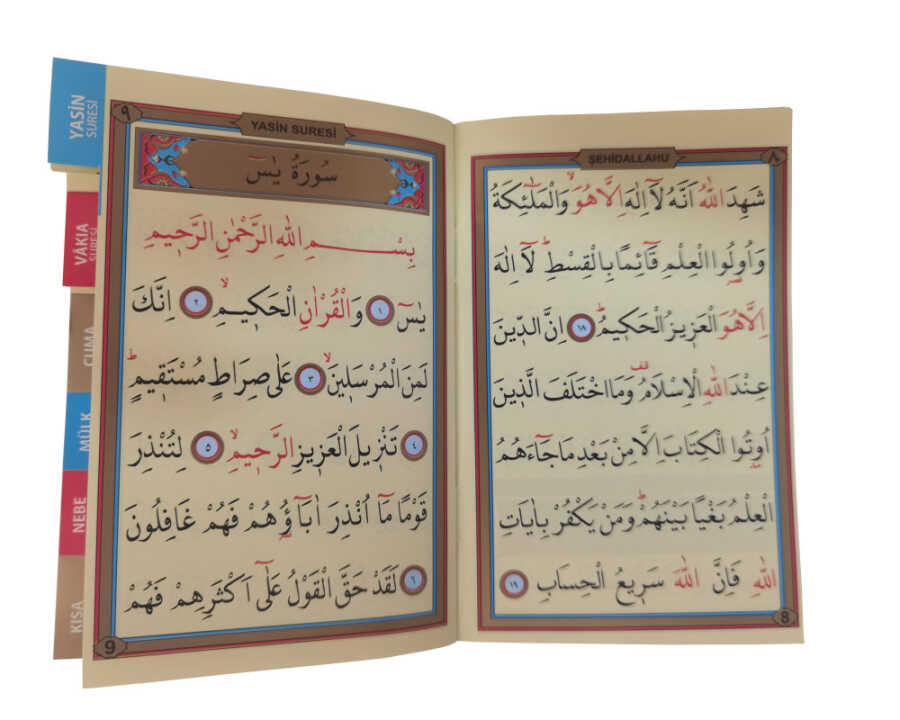 ŞEHİDALLAHU
٨
شَهِدَ اللّٰهُ اَنَّهُ لَٓا اِلٰهَ اِلَّا هُوَۙ وَالْمَلٰٓئِكَةُ
وَاُو۬لُوا الْعِلْمِ قَٓائِمًا بِالْقِسْطِۜ لَٓا اِلٰهَ
اِلَّا هُوَ الْعَز۪يزُ الْحَك۪يمُۜ ﴿١٨﴾ اِنَّ الدّ۪ينَ
عِنْدَ اللّٰهِ الْاِسْلَامُ۠ وَمَا اخْتَلَفَ الَّذ۪ينَ
اُو۫تُوا الْكِتَابَ اِلَّا مِنْ بَعْدِ مَا جَٓاءَهُمُ
الْعِلْمُ بَغْيًا بَيْنَهُمْۜ وَمَنْ يَكْفُرْ بِاٰيَاتِ
اللّٰهِ فَاِنَّ اللّٰهَ سَر۪يعُ الْحِسَابِ ﴿١٩﴾
8
٩
YASİN SURESİ
سُورَةُ يٰسٓ
بِسْمِ اللّٰهِ الرَّحْمٰنِ الرَّح۪يمِ
يٰسٓ ﴿١﴾ وَالْقُرْاٰنِ الْحَك۪يمِۙ ﴿٢﴾ اِنَّكَ
لَمِنَ الْمُرْسَل۪ينَۙ ﴿٣﴾ عَلٰى صِرَاطٍ مُسْتَق۪يمٍۜ
﴿٤﴾ تَنْز۪يلَ الْعَز۪يزِ الرَّح۪يمِۙ ﴿٥﴾ لِتُنْذِرَ
قَوْمًا مَٓا اُنْذِرَ اٰبَٓاؤُ۬هُمْ فَهُمْ غَافِلُونَ
﴿٦﴾ لَقَدْ حَقَّ الْقَوْلُ عَلٰٓى اَكْثَرِهِمْ فَهُمْ
9
YASİN
SURESİ
VÂKIA
SURESİ
CUMA
MÜLK
NEBE
KISA